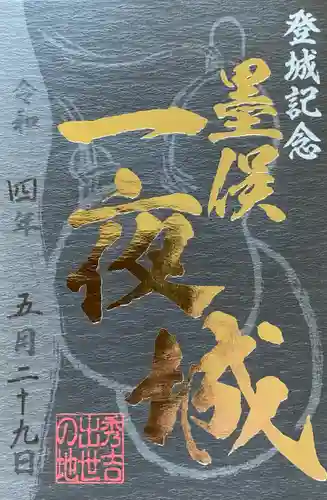 登城記念
墨俣
一夜城
令和四年 五月二十九日
秀吉
出世
の地